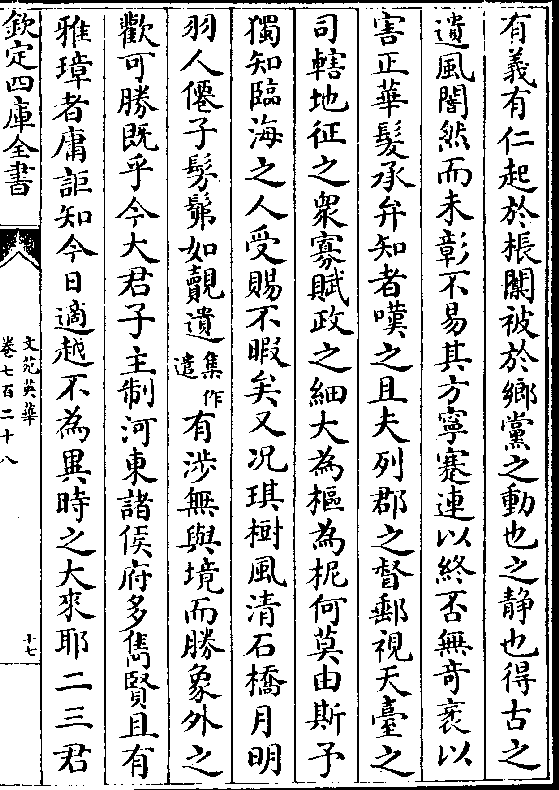 有義有仁起於棖闑被於鄉黨之動也之静也得古之
遺風闇然而未彰不易其方寧蹇連以終否無竒衺以
害正華髮承弁知者嘆之且夫列郡之督郵視天臺之
司轄地征之衆寡賦政之細大為樞為柅何莫由斯予
獨知臨海之人受賜不暇矣又况琪樹風清石橋月明
羽人僊子髣髴如覿遺集作遣有涉無與境而勝象外之
歡可勝既乎今大君子主制河東諸侯府多雋賢且有
雅璋者庸詎知今日適越不為異時之大來耶二三君
欽定四庫全書
文苑英華
卷七百二十八
十七